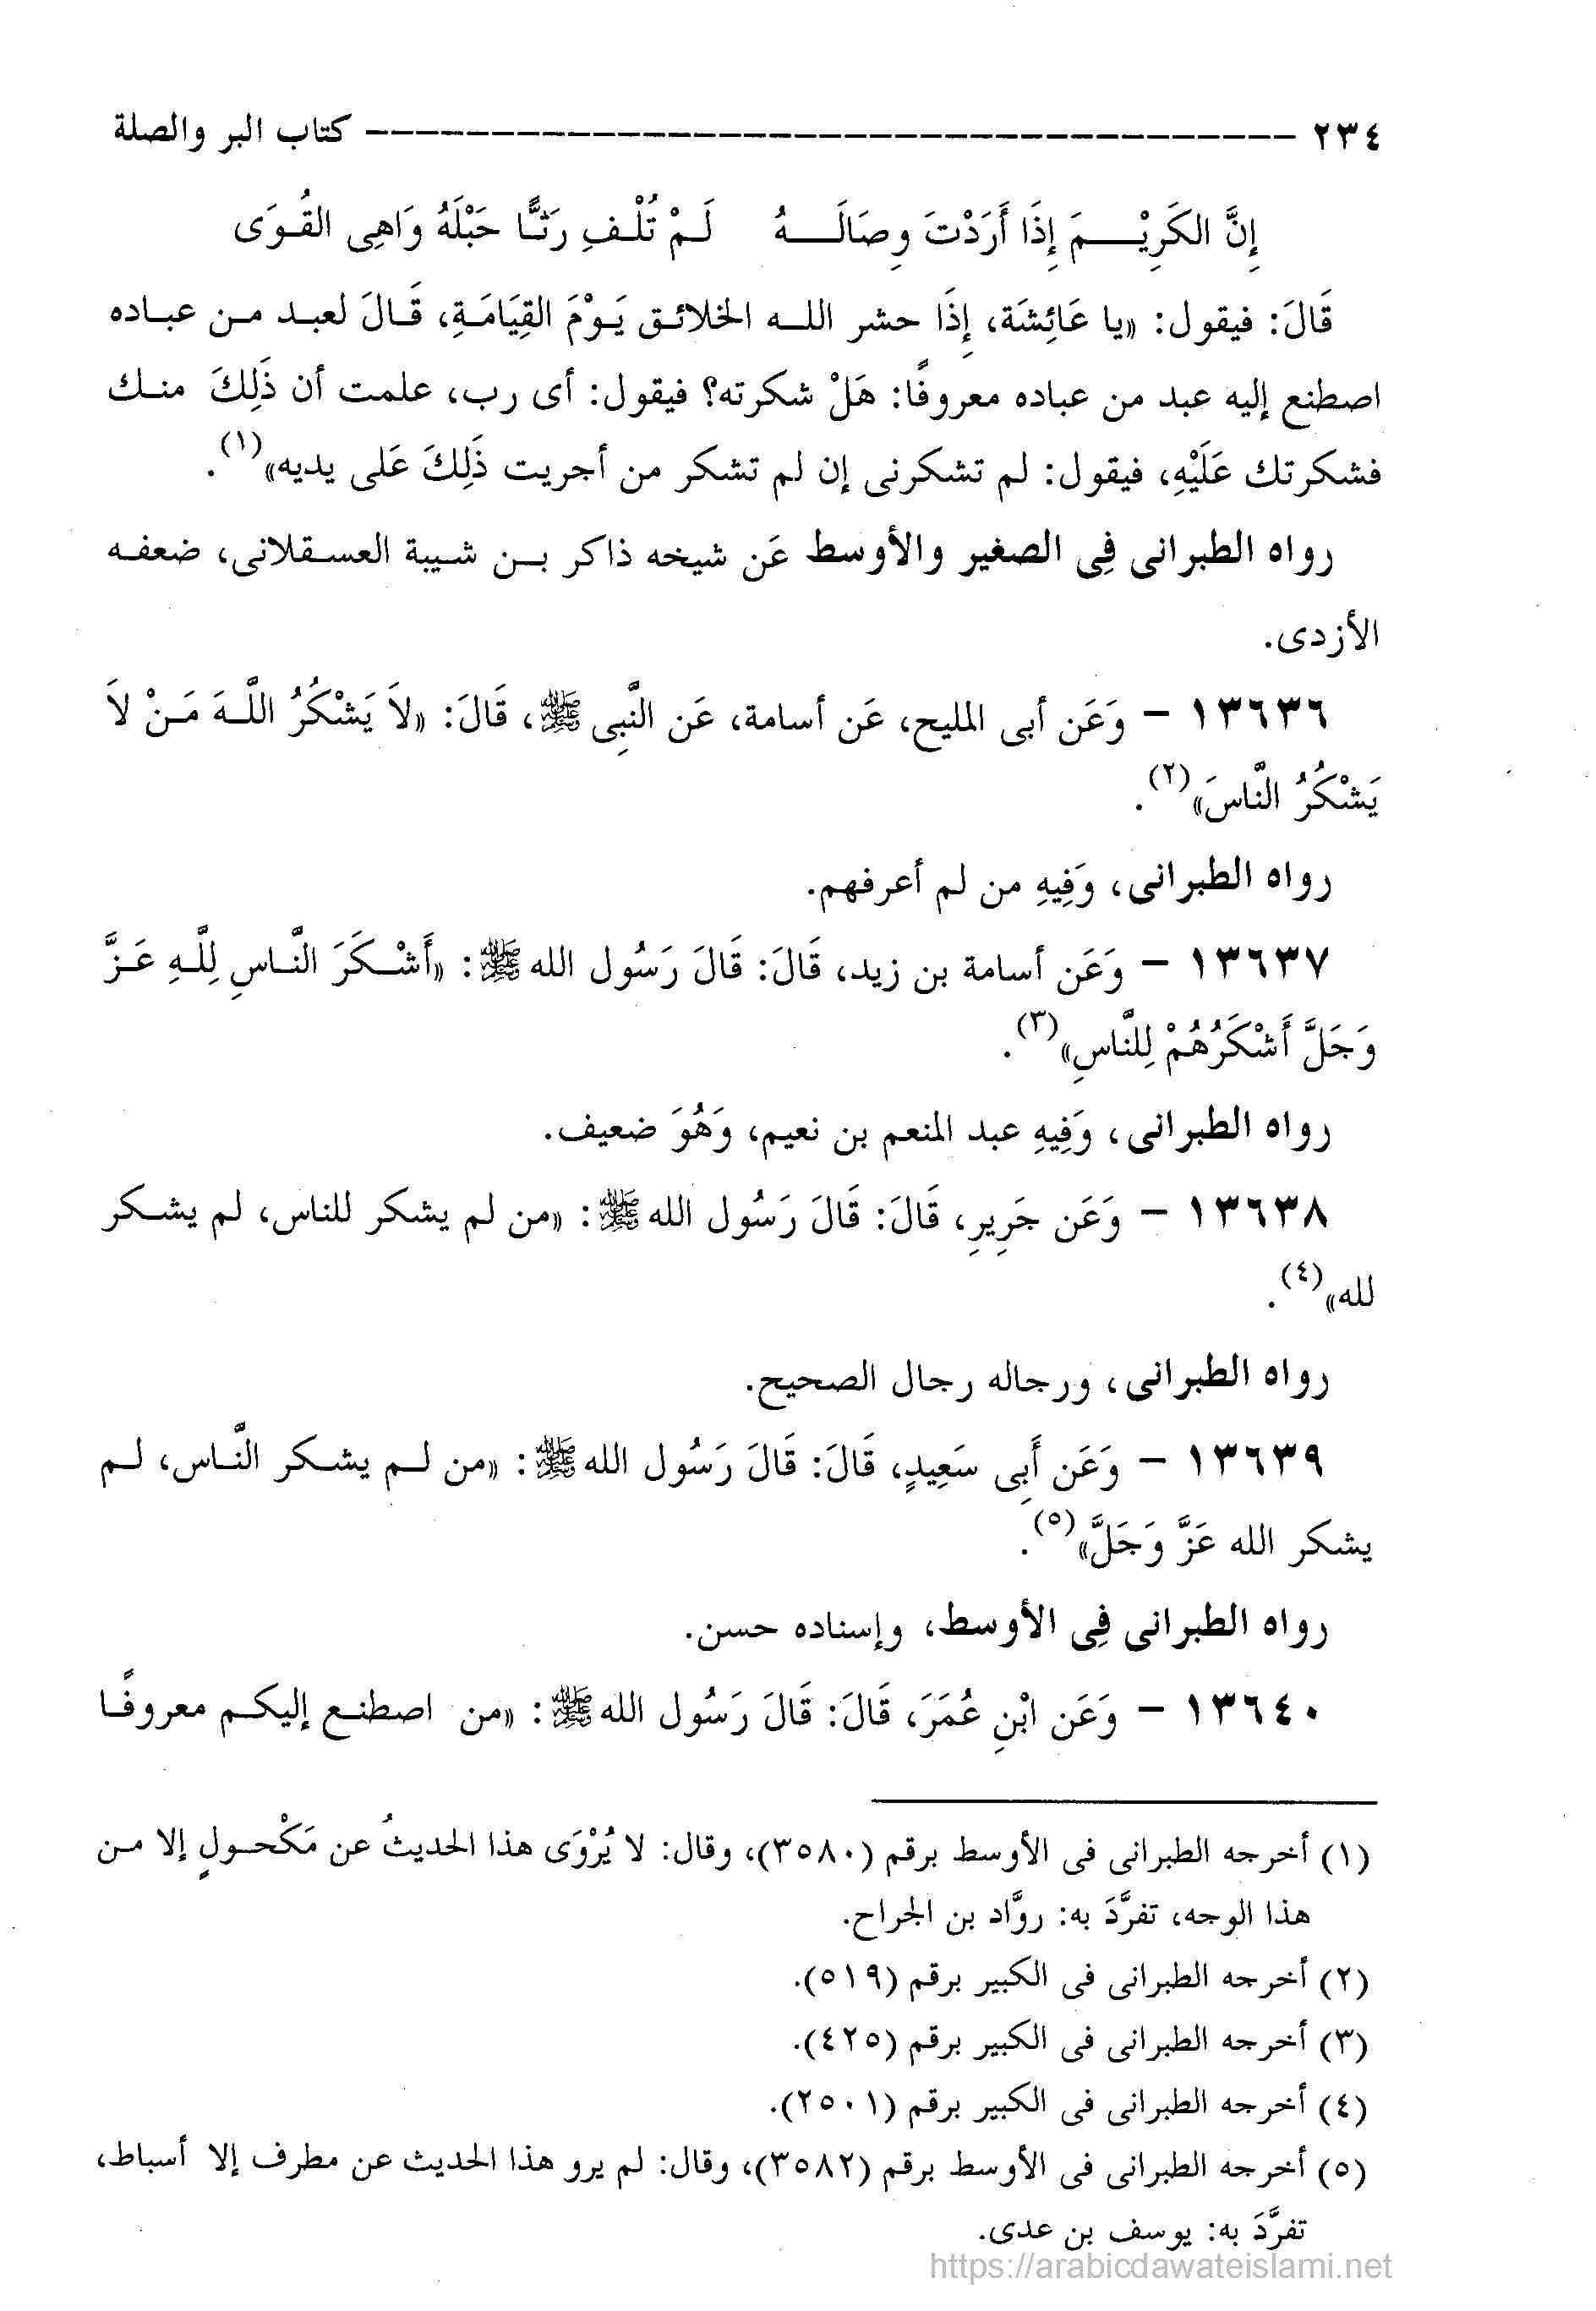 ٢٣٤ ------------------------------------- كتاب البر والصلة
إِنَّ الكَرِيْـــمَ إِذَا أَرَدْتَ وِصَالَـــهُ لَـمْ تُلْـفِ رَثًّـا حَبْلَهُ وَاهِى القُـوَى
قَالَ: فيقول: «يا عَائِشَة، إِذَا حشر اللـه الخلائـق يَـوْمَ القِيَامَـةِ، قَـالَ لعبـد مـن عبـاده
اصطنع إليه عبد من عباده معروفًا: هَلْ شكرته؟ فيقول: أى رب، علمت أن ذَلِكَ منـك
فشكرتك عَلَيْهِ، فيقول: لم تشكرنى إن لم تشكر من أجريت ذَلِكَ عَلى يديه»(١).
رواه الطبرانى فِى الصغير والأوسط عَن شيخه ذاكر بـن شـيبة العسـقلانى، ضعفـه
الأزدى.
١٣٦٣٦ – وَعَن أبى المليح، عَن أسامة، عَن النَّبِى ﷺ، قَالَ: «لاَ يَشْكُرُ اللَّـهَ مَـنْ لاَ
يَشْكُرُ النَّاسَ»(٢).
رواه الطبرانى، وَفِيهِ من لم أعرفهم.
١٣٦٣٧ – وَعَن أسامة بن زيد، قَالَ: قَالَ رَسُول الله ﷺ: «أَشْـكَرَ النَّـاسِ لِلَّـهِ عَـزَّ
وَجَلَّ أَشْكَرُهُمْ لِلنَّاسِ»(٣).
رواه الطبرانى، وَفِيهِ عبد المنعم بن نعيم، وَهُوَ ضعيف.
١٣٦٣٨ – وَعَن جَرِيرِ، قَالَ: قَالَ رَسُول الله ﷺ: «من لم يشكر للناس، لم يشـكر
لله»(٤).
رواه الطبرانى، ورجاله رجال الصحيح.
١٣٦٣٩ – وَعَن أَبِى سَعِيدٍ، قَالَ: قَالَ رَسُول الله ﷺ: «من لـم يشـكر النَّـاس، لـم
يشكر الله عَزَّ وَجَلَّ»(٥).
رواه الطبرانى فِى الأوسط، وإسناده حسن.
١٣٦٤٠ – وَعَن ابْنِ عُمَرَ، قَالَ: قَالَ رَسُول الله ﷺ: «من اصطنـع إليكـم معروفًـا
(١) أخرجه الطبرانى فى الأوسط برقم (٣٥٨٠)، وقال: لا يُرْوَى هذا الحديثُ عن مَكْحـولٍ إلا مـن
هذا الوجه، تفرَّدَ به: روَّاد بن الجراح.
(٢) أخرجه الطبرانى فى الكبير برقم (٥١٩).
(٣) أخرجه الطبرانى فى الكبير برقم (٤٢٥).
(٤) أخرجه الطبرانى فى الكبير برقم (٢٥٠١).
(٥) أخرجه الطبرانى فى الأوسط برقم (٣٥٨٢)، وقال: لم يرو هذا الحديث عن مطرف إلا أسباط،
تفرَّدَ به: يوسف بن عدى.
https://arabicdawateislami.net